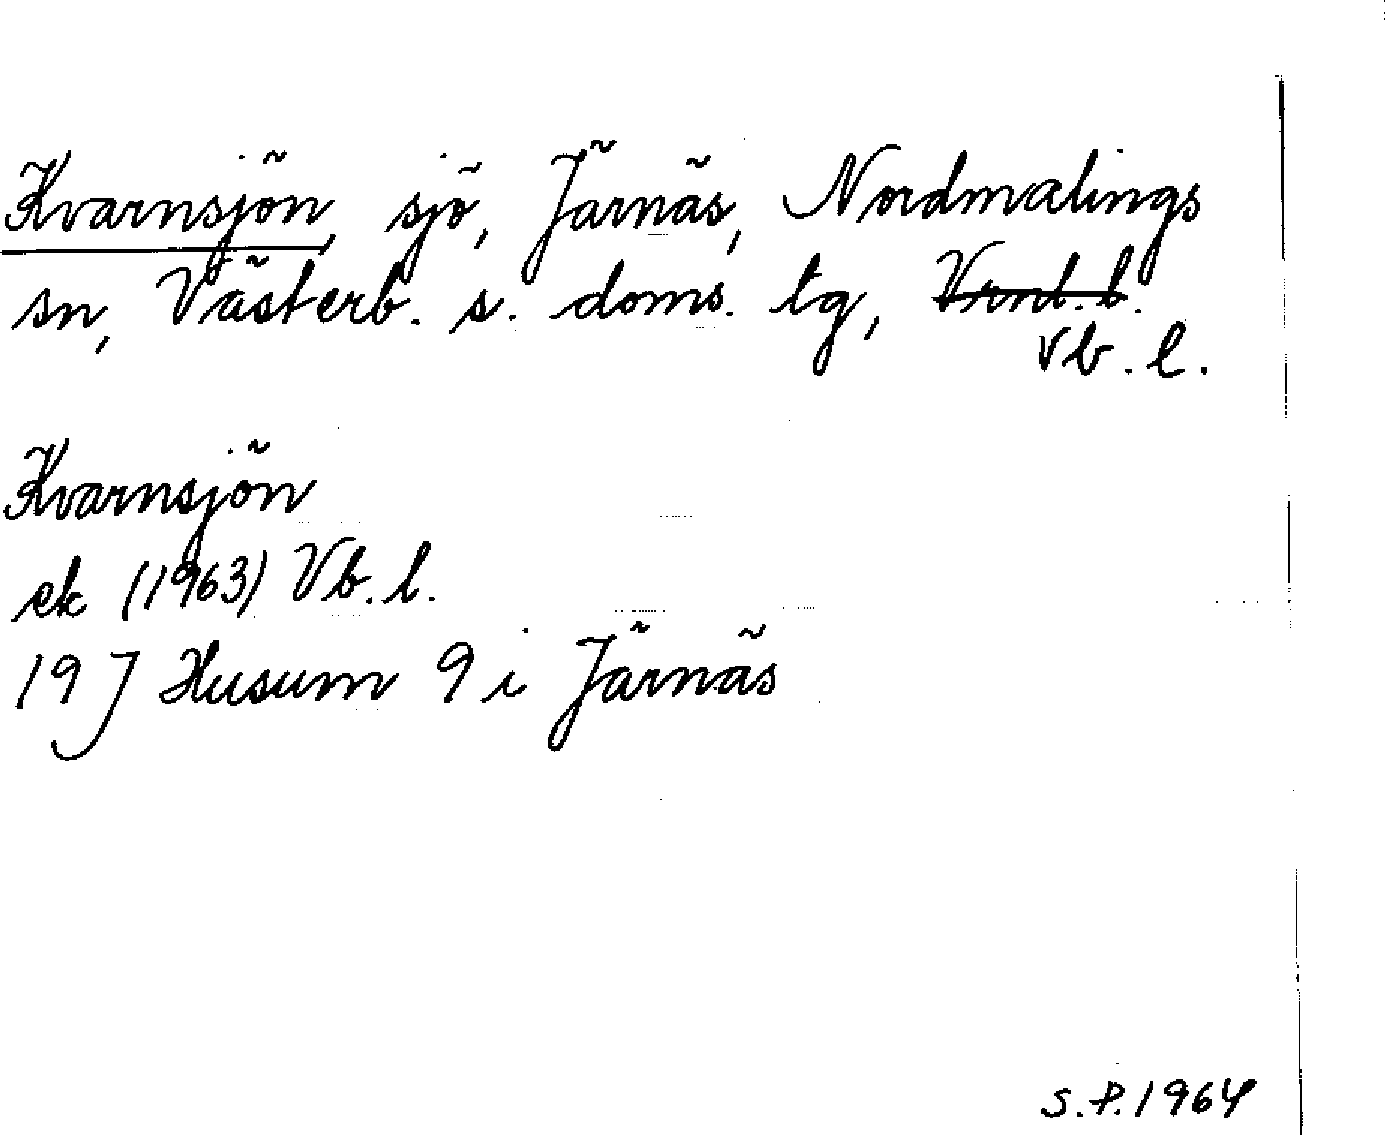 Kvarnsjön, sjö, Järnäs, Nordmalings
sn, Västerb. s. doms. tg, Vrml. l.
Vb. l.
Kvarnsjön
ek (1963) Vb. l.
19 J Husum 9 i Järnäs
S.P. 1964